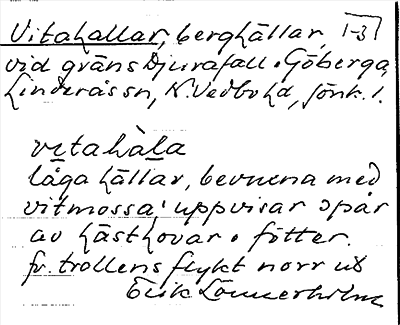 Vitahallar, berghällar, 1-3
vid gräns Djurafall o Göberga,
Linderås sn, N. Vedbo hd, Jönk. l.
vitahàla
låga hällar, bevuxna med
vitmossa; uppvisar spår
av hästhovar o fötter.
fr. trollens flykt norr ut
Erik Lönnerholm